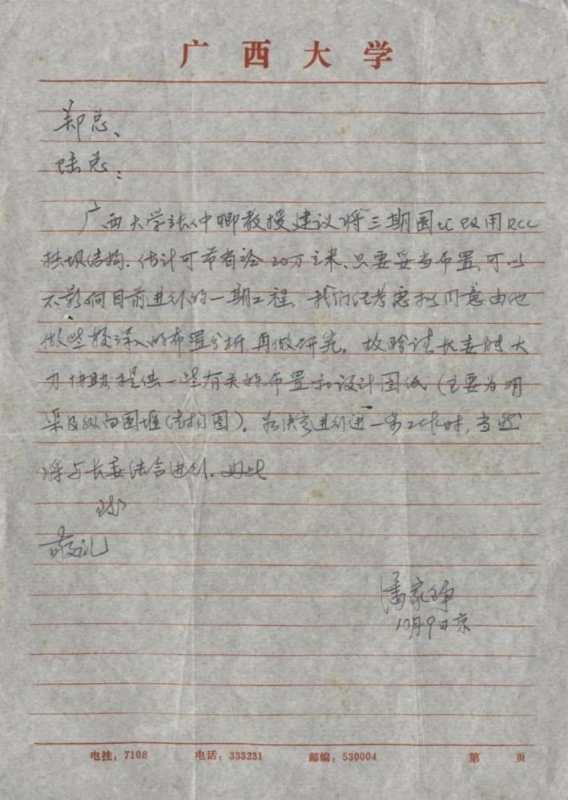 广西大学
郑总、
陆总:
广西大学张仲卿教授建议将三期围堰改用RCC
拱坝结构、估计可节省砼20万立米、只要妥当布置,可以
不影响目前进行的一期工程,我们经考虑拟同意由他
做些较深入的布置分析,再做研究。故盼请长委能大
力协助提供一些有关的布置和设计图纸(主要为明
渠及纵向围堰结构图)。若决定进行进一步工作时,当然
将与长委结合进行.
此
敬礼
潘家铮
10月9日京
电挂:7108 电话:333231 邮编:530004 第 页